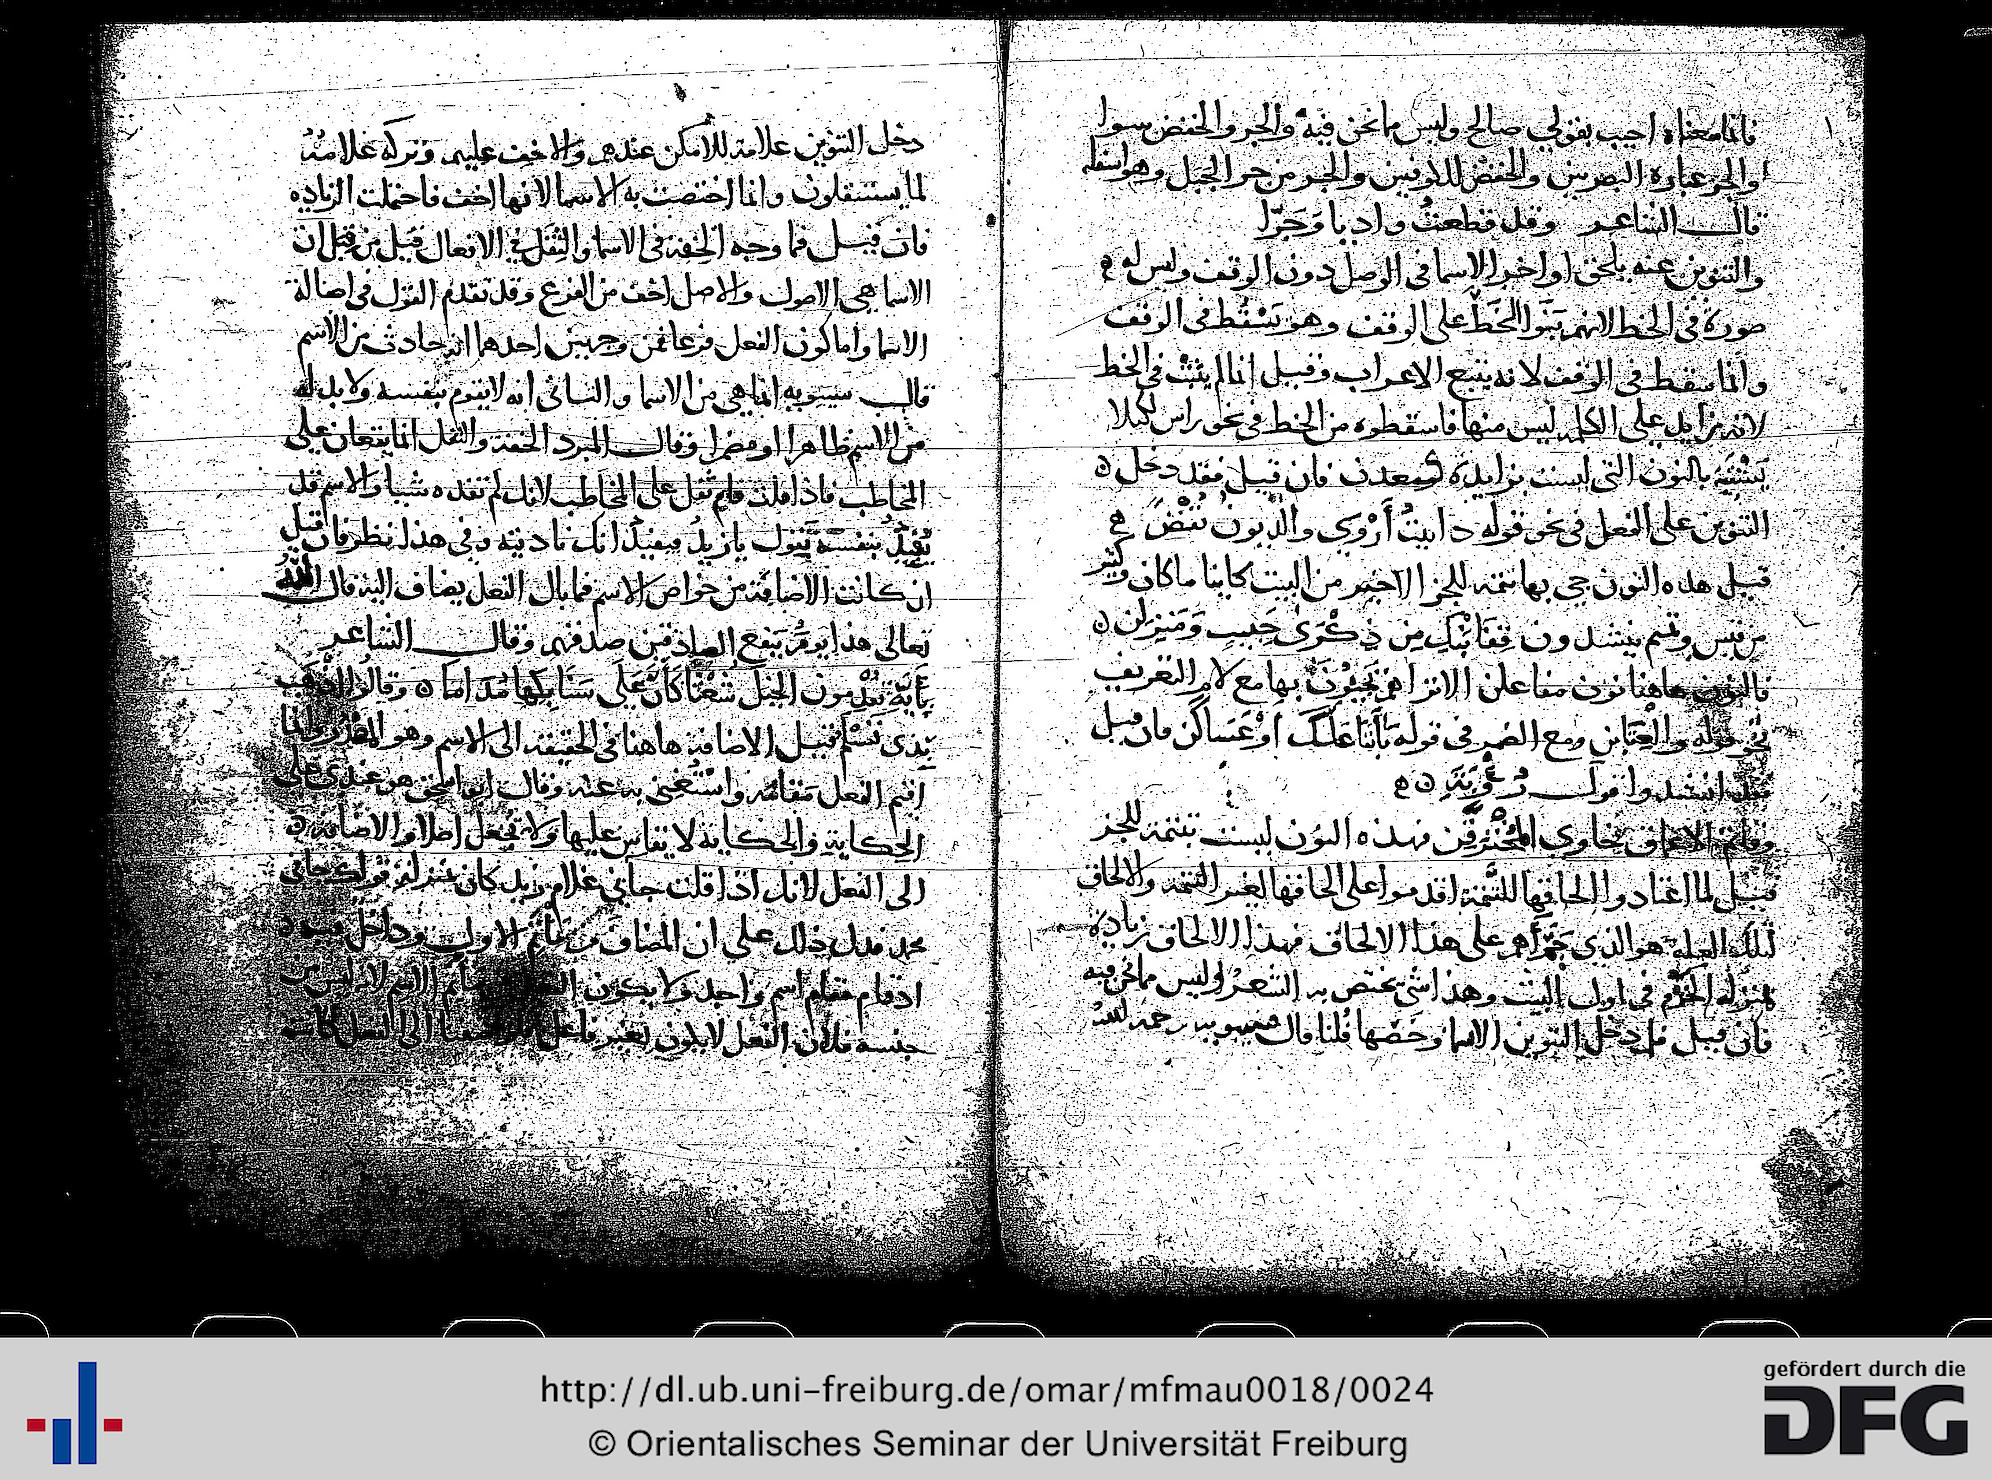 فانما معناه اجيب بقولي صالح وليس مما نحن فيه والجر والخفض سوا
والجر عبارة البصريين والخفض للكوفيين والجر من جر الجبل وهو اسفله
قال الشاعر وقد قطعت واديا وجرا
والتنوين عنه يلحق اواخر الاسما في الوصل دون الوقف وليس له
صورة في الخط لانهم بنوا الخط على الوقف وهو يسقط في الوقف
وانما سقط في الوقف لانه يتبع الاعراب وقيل انما لم يثبت في الخط
لانه زايد على الكلمه ليس منها فاسقطوه من الخط في نحو راس لكيلا
يشتبه بالنون التي ليست بزايدة فان قيل فقد دخل
التنوين على الفعل في نحو قوله داينت أروى والديون تقضن
قيل هذه النون جي بها تتمة للجز الاخير من البيت كاينا ما كان وكثير
من قيس وتميم ينشدون قفا نبك من ذكرى حبيب ومنزلن
فالنون هاهنا نون مفاعلن الا تراهم يجيزون بها مع لام التعريف
نحو قوله والعتابن ومع الضمير في قوله يا أبتا علك أو عساكن فان قيل
فقد انشدوا قول رؤبة
وقاتم الاعماق خاوي المخترقن فهذه النون ليست بتتمة للجز
قيل لما اعتادوا الحاقها للتتمة اقدموا على الحاقها لغير التتمه والالحاق
لتلك العلة هو الذي جرأهم على هذا الالحاق فهذا الالحاق زيادة
بمنزلة الخزم في اول البيت وهذا شي يختص به الشعر وليس مما نحن فيه
فان قيل فلم دخل التنوين الاسما وخصها قلنا قال سيبويه رحمه الله
دخل التنوين علامة للامكن عندهم والاخف عليهم وتركه علامة
لما يستثقلون وانما اختصت به الاسما لانها اخف فاحتملت الزياده
فان قيل فما وجه الخفة في الاسما والثقل في الافعال قيل من قبل ان
الاسما هي الاصول والاصل اخف من الفرع وقد تقدم القول في اصالة
الاسما واما كون الفعل فرعا فمن وجهين احدهما انه حادث من الاسم
قال سيبويه انما هي من الاسما والثاني انه لا يقوم بنفسه ولا بد له
من الاسم ظاهرا او مضمرا وقال المبرد الخفة والثقل انما يقعان على
المخاطب فاذا قلت قام ثقل على المخاطب لانك لم تفده شيا والاسم قد
يفيد بنفسه تقول يا زيد فيفيد انك ناديته وفي هذا نظر فان قيل
ان كانت الاضافة من خواص الاسم فما بال الفعل يضاف اليه قال الله
تعالى هذا يوم ينفع الصادقين صدقهم وقال الشاعر
بآية يقدمون الخيل شعثا كأن على سنابكها مداما وقالوا اذهب
بذي تسلم قيل الاضافة هاهنا في الحقيقة الى الاسم وهو المصدر وانما
اقيم الفعل مقامه واستغني به عنه وقال ابو اسحق هو عندي على
الحكاية والحكاية لا يقاس عليها ولا تجعل اصلا والاضافة
الى الفعل لانك اذا قلت جاني غلام زيد كان بمنزلة قولك جاني
محمد فدل ذلك على ان المضاف من الاول وداخل فيه
اذ قام مقام اسم واحد ولا يكون الاسم لانه ليس من
جنسه فلان الفعل لا يكون بغير فاعل الى الفعل
http://dl.ub.uni-freiburg.de/omar/mfmau0018/0024
© Orientalisches Seminar der Universität Freiburg
gefördert durch die
DFG